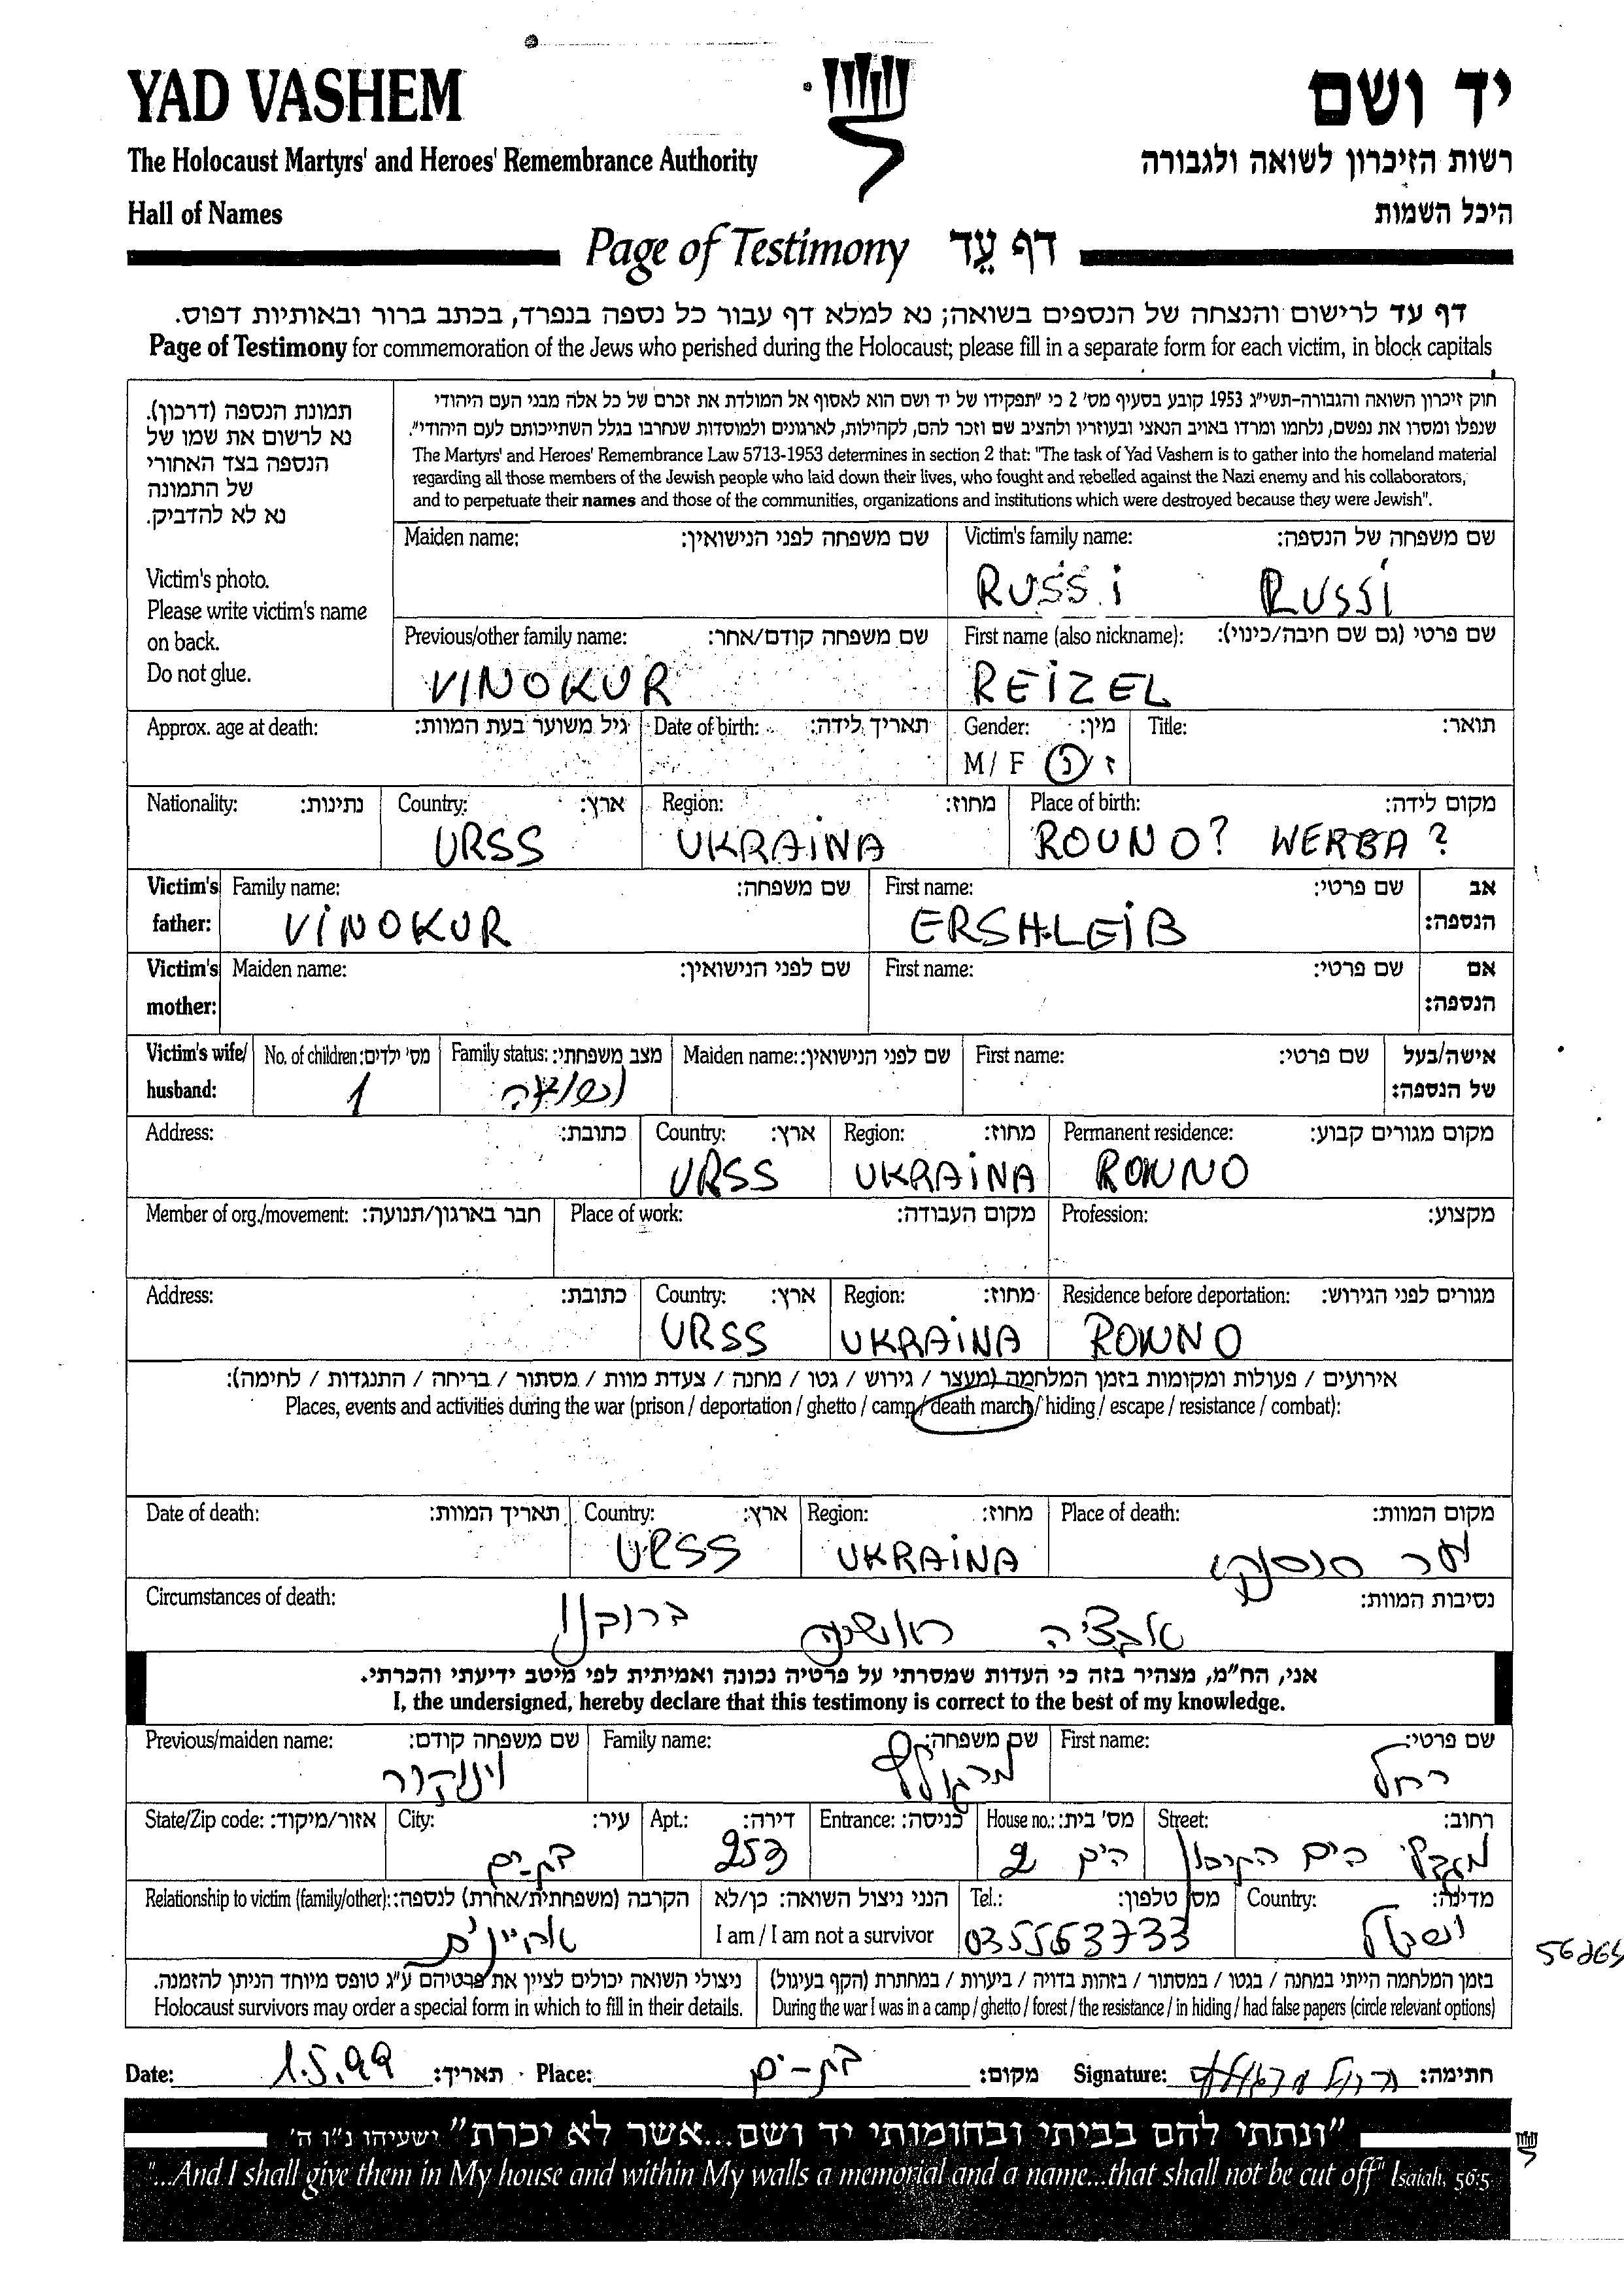 YAD VASHEM
יד ושם
The Holocaust Martyrs' and Heroes' Remembrance Authority
רשות הזיכרון לשואה ולגבורה
Hall of Names
היכל השמות
Page of Testimony דף עֵד
דף עד לרישום והנצחה של הנספים בשואה; נא למלא דף עבור כל נספה בנפרד, בכתב ברור ובאותיות דפוס.
Page of Testimony for commemoration of the Jews who perished during the Holocaust; please fill in a separate form for each victim, in block capitals
תמונת הנספה (דרכון).
נא לרשום את שמו של
הנספה בצד האחורי
של התמונה
נא לא להדביק.
Victim's photo.
Please write victim's name
on back.
Do not glue.
חוק זיכרון השואה והגבורה-תשי"ג 1953 קובע בסעיף מס' 2 כי "תפקידו של יד ושם הוא לאסוף אל המולדת את זכרם של כל אלה מבני העם היהודי
שנפלו ומסרו את נפשם, נלחמו ומרדו באויב הנאצי ובעוזריו ולהציב שם וזכר להם, לקהילות, לארגונים ולמוסדות שנחרבו בגלל השתייכותם לעם היהודי".
The Martyrs' and Heroes' Remembrance Law 5713-1953 determines in section 2 that: "The task of Yad Vashem is to gather into the homeland material
regarding all those members of the Jewish people who laid down their lives, who fought and rebelled against the Nazi enemy and his collaborators,
and to perpetuate their names and those of the communities, organizations and institutions which were destroyed because they were Jewish".
Maiden name: שם משפחה לפני הנישואין:
Victim's family name: שם משפחה של הנספה:
RUSSi RUSSi
Previous/other family name: שם משפחה קודם/אחר:
VINOKUR
First name (also nickname): שם פרטי (גם שם חיבה/כינוי):
REiZEL
Approx. age at death: גיל משוער בעת המוות:
Date of birth: תאריך לידה:
Gender: מין:
M / F ז / נ
Title: תואר:
Nationality: נתינות:
Country: ארץ:
URSS
Region: מחוז:
UKRAiNA
Place of birth: מקום לידה:
ROUNO? WERBA?
Victim's father: Family name: שם משפחה:
ViNOKUR
First name: שם פרטי:
ERSHLEiB
אב הנספה:
Victim's mother: Maiden name: שם לפני הנישואין:
First name: שם פרטי:
אם הנספה:
Victim's wife/ husband: No. of children: מס' ילדים:
1
Family status: מצב משפחתי:
נשואה
Maiden name: שם לפני הנישואין:
First name: שם פרטי:
אישה/בעל של הנספה:
Address: כתובת:
Country: ארץ:
URSS
Region: מחוז:
UKRAiNA
Permanent residence: מקום מגורים קבוע:
ROWNO
Member of org./movement: חבר בארגון/תנועה:
Place of work: מקום העבודה:
Profession: מקצוע:
Address: כתובת:
Country: ארץ:
URSS
Region: מחוז:
UKRAiNA
Residence before deportation: מגורים לפני הגירוש:
ROWNO
אירועים / פעולות ומקומות בזמן המלחמה (מעצר / גירוש / גטו / מחנה / צעדת מוות / מסתור / בריחה / התנגדות / לחימה):
Places, events and activities during the war (prison / deportation / ghetto / camp / death march / hiding / escape / resistance / combat):
Date of death: תאריך המוות:
Country: ארץ:
URSS
Region: מחוז:
UKRAiNA
Place of death: מקום המוות:
יער סוסנקי
Circumstances of death: נסיבות המוות:
אקציה ראשונה ברובנו
אני, הח"מ, מצהיר בזה כי העדות שמסרתי על פרטיה נכונה ואמיתית לפי מיטב ידיעתי והכרתי.
I, the undersigned, hereby declare that this testimony is correct to the best of my knowledge.
Previous/maiden name: שם משפחה קודם:
וינוקור
Family name: שם משפחה:
First name: שם פרטי:
רחל
State/Zip code: אזור/מיקוד:
City: עיר:
בת-ים
Apt.: דירה:
253
Entrance: כניסה:
House no.: מס' בית:
הים 2
Street: רחוב:
מגדלי הים התיכון
Relationship to victim (family/other): הקרבה (משפחתית/אחרת) לנספה:
אחיינית
הנני ניצול השואה: כן/לא
I am / I am not a survivor
Tel.: מס' טלפון:
035553733
Country: מדינה:
ישראל
ניצולי השואה יכולים לציין את פרטיהם ע"ג טופס מיוחד הניתן להזמנה.
Holocaust survivors may order a special form in which to fill in their details.
בזמן המלחמה הייתי במחנה / בגטו / במסתור / בזהות בדויה / ביערות / במחתרת (הקף בעיגול)
During the war I was in a camp / ghetto / forest / the resistance / in hiding / had false papers (circle relevant options)
Date: 1.5.99 תאריך:
Place: בת-ים מקום:
Signature: חתימה:
"ונתתי להם בביתי ובחומותי יד ושם...אשר לא יכרת" ישעיהו נ"ו ה'
"...And I shall give them in My house and within My walls a memorial and a name...that shall not be cut off" Isaiah, 56:5